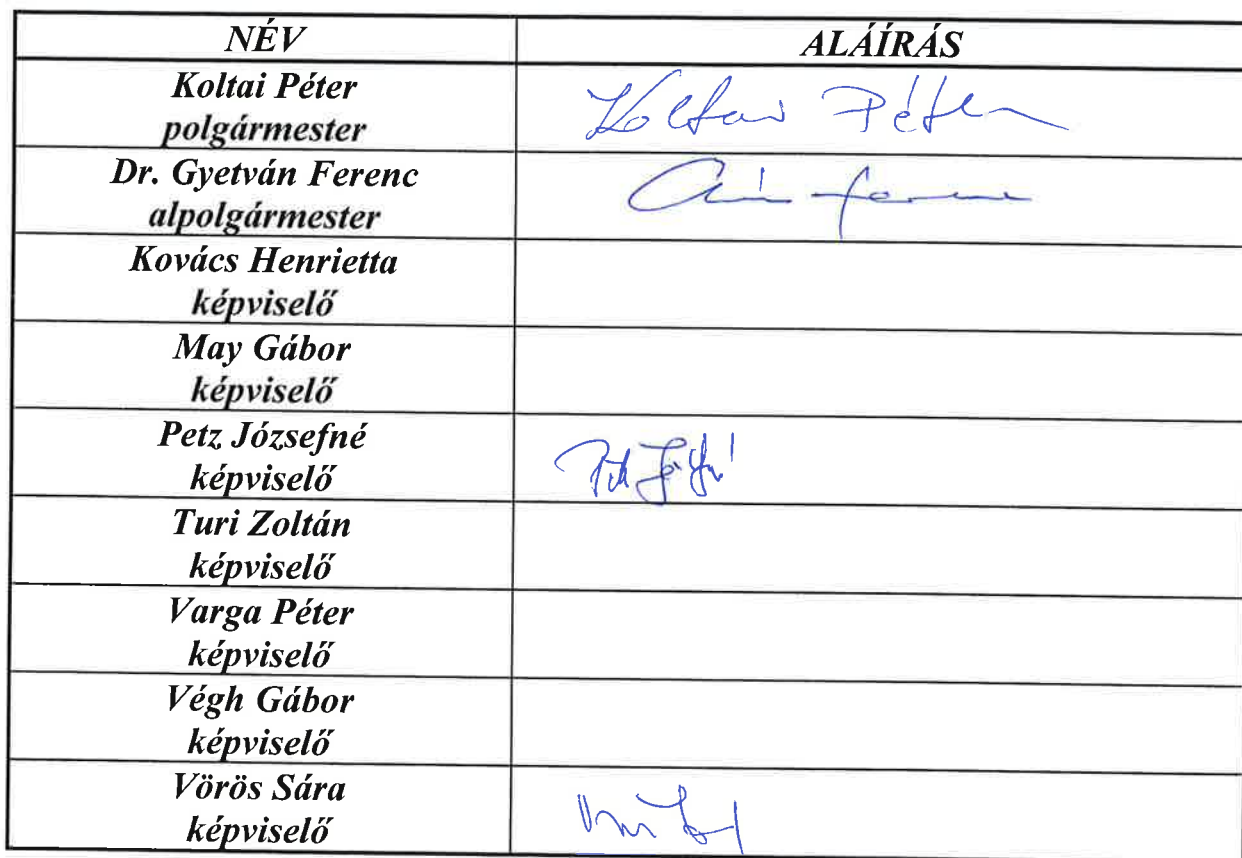 NÉV ALÁÍRÁS
Koltai Péter
polgármester
Koltai Péter
Dr. Gyetván Ferenc
alpolgármester
Kovács Henrietta
képviselő
May Gábor
képviselő
Petz Józsefné
képviselő
Turi Zoltán
képviselő
Varga Péter
képviselő
Végh Gábor
képviselő
Vörös Sára
képviselő